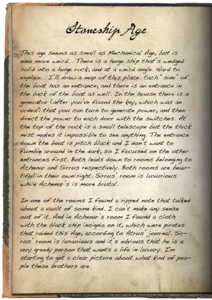 Stoneship Age
This age seems as small as Mechanical Age, but is
even more weird... There is a huge ship that's wedged
solid into a huge rock, and at a weird angle. Hard to
explain... I'll draw a map of this place. Each "side" of
the boat has an entrance, and there is an entrance in
the back of the boat as well. In the house there is a
generator (after you've found the key, which was an
ordeal) that you can turn to generate power, and then
direct the power to each door with the switches. At
the top of the rock is a small telescope but the thick
mist makes it impossible to see anything. The entrance
down the boat is pitch black and I don't want to
fumble around in the dark, so I focused on the other
entrances first. Both leads down to rooms belonging to
Achenar and Sirrus respectively. Both rooms are beau-
tiful in their own right, Sirrus' room is luxurious
while Achenar's is more brutal.
In one of the rooms I found a ripped note that talked
about a vault of some kind. I can't make any sense
out of it. And in Achenar's room I found a cloth
with the black ship insignia on it, which were pirates
that raided this Age, according to Atrus' journal. Sir-
rus' room is luxurious and it is obvious that he is a
very greedy person that wants a life in luxury. I'm
starting to get a clear picture about what kind of peo-
ple these brothers are.